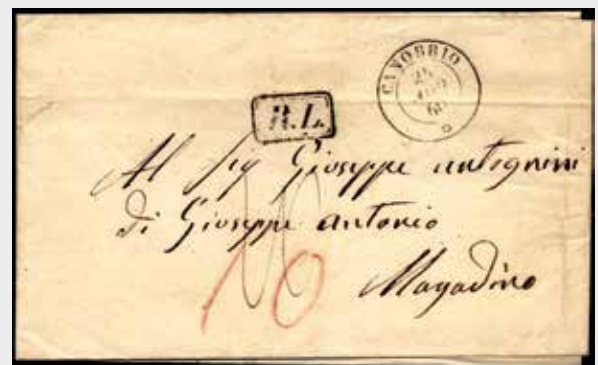 CANOBBIO
R.L.
Al Sig Giuseppe antognini
di Giuseppe antonio
10
Magadino